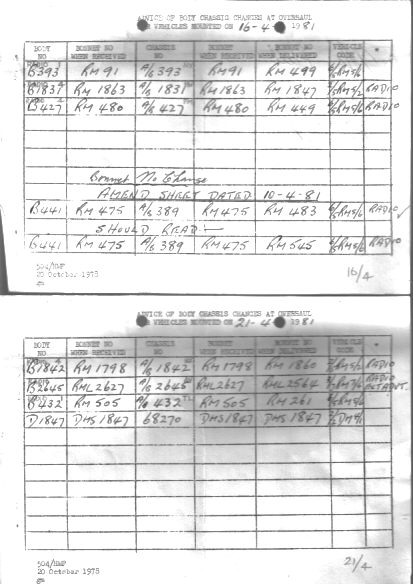 ADVICE OF BODY CHASSIS CHANGES AT OVERHAUL
VEHICLES MOUNTED ON 16-4- 1981
BODY NO BONNET NO WHEN RECEIVED CHASSIS NO BONNET NO WHEN RECEIVED BONNET NO WHEN DELIVERED VEHICLE CODE *
B393 RM 91 A/S 393 RM91 RM 499
B1831 RM 1863 A/S 1831 RM1863 RM 1847 RADIO
B427 RM 480 A/S 427 RM480 RM 449 RADIO
Bonnet No Change
AMEND SHEET DATED 10-4-81
B441 RM 475 A/S 389 RM475 RM 483 RADIO
SHOULD READ:-
B441 RM 475 A/S 389 RM475 RM 545 RADIO
504/HMP
20 October 1978
16/4
ADVICE OF BODY CHASSIS CHANGES AT OVERHAUL
VEHICLES MOUNTED ON 21-4- 1981
BODY NO BONNET NO WHEN RECEIVED CHASSIS NO BONNET NO WHEN RECEIVED BONNET NO WHEN DELIVERED VEHICLE CODE *
B1842 RM 1798 A/S 1842 RM1798 RM 1860 RADIO
B2645 RML2627 A/S 2645 RML2627 RML 2564 RADIO
B432 RM 505 A/S 432 RM505 RM 261
D1847 DMS 1847 68270 DMS1847 DMS 1847
504/HMP
20 October 1978
21/4